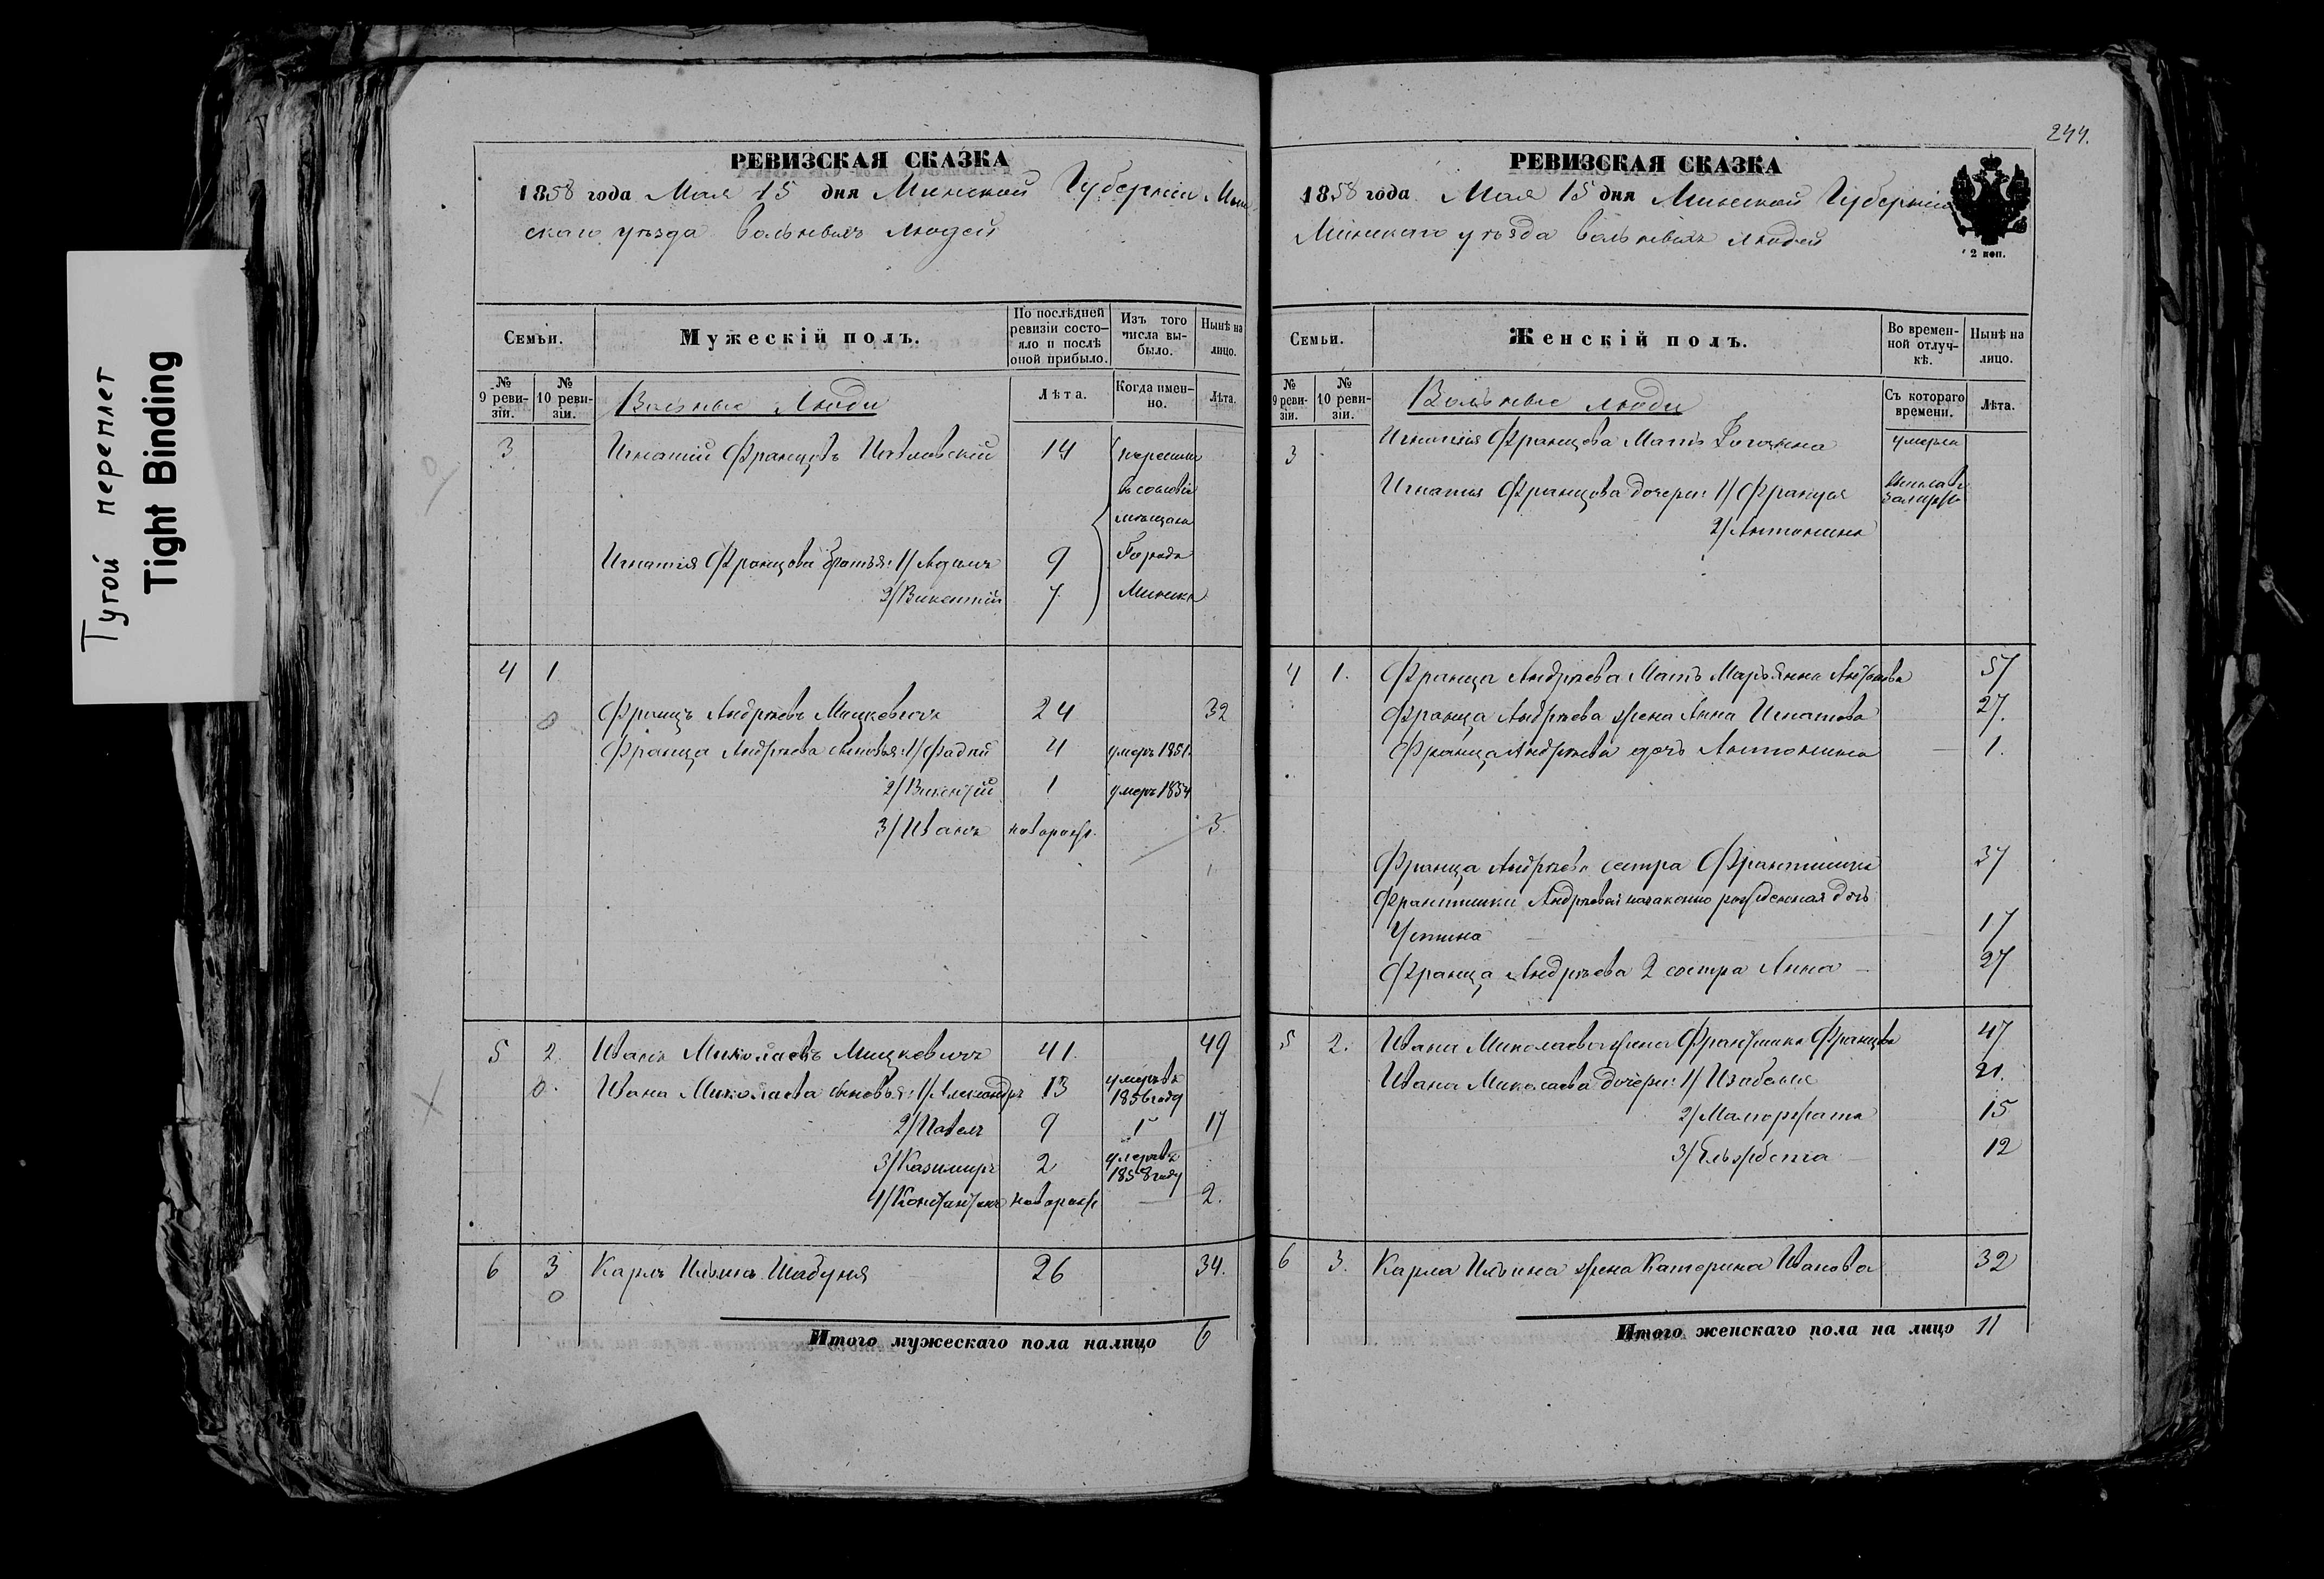 Тугой переплет
Tight Binding
РЕВИЗСКАЯ СКАЗКА
1858 года Мая 15 дня Минской Губерніи Мин
скаго уѣзда Вольныхъ Людей
Семьи.
Мужескій полъ.
По послѣдней ревизіи состо-
яло и послѣ оной прибыло.
Изъ того числа вы-
было.
Нынѣ на лицо.
№ 9 реви-
зіи.
№ 10 реви-
зіи.
Вольные Люди
Лѣта.
Когда имен-
но.
Лѣта.
3 Игнатій Францовъ 14
въ сословіе
мѣщанъ
Игнатія Францова братья: 1/ Адамъ 9 Города
2/ Викентій 7 Минска
4 1
Францъ Андреевъ Мицкевичъ 24 32
0
Франца Андреева сыновья: 1/ Фадей 4 умеръ 1851
2/ Викентій 1 умеръ 1854
3/ Иванъ поворожд. 3.
5 2. Иванъ Миколаевъ Мицкевичъ 41. 49
0. Ивана Миколаева сыновья: 1/ Александръ 13 умеръ въ
1856 году
2/ Павелъ 9 17
3/ Казимиръ 2 умеръ въ
1858 году
4/ Константинъ новорожд 2.
6 3 Карлъ Ильинъ Шабуня 26 34.
0
Итого мужескаго пола налицо 6
244.
РЕВИЗСКАЯ СКАЗКА
1858 года Мая 15 дня Минской Губерніи
Минскаго уѣзда Вольныхъ Людей
2 коп.
Семьи.
Женскій полъ.
Во времен-
ной отлуч-
кѣ.
Нынѣ на лицо.
№ 9 реви-
зіи.
№ 10 реви-
зіи.
Вольные люди
Съ котораго времени.
Лѣта.
3 Игнатія Францова Мать умерла
Игнатія Францова дочери: 1/
замужъ
2/ Антонина
4 1. Франца Андреева Мать Марьянна 57
Франца Андреева жена Анна Игнатова 27.
Франца Андреева дочь Антонина 1.
Франца Андреева сестра Франтишка 37
Франтишки Андреевой незаконно рожденная дочь
Устина 17
Франца Андреева 2 сестра Анна 27
5 2. Ивана Миколаева жена Франтишка Францова 47
Ивана Миколаева дочери: 1/ Изабелла 21.
2/ Малгоржата 15
3/ Ельжбета 12
6 3. Карла Ильина жена Катерина Иванова 32
Итого женскаго пола на лицо 11